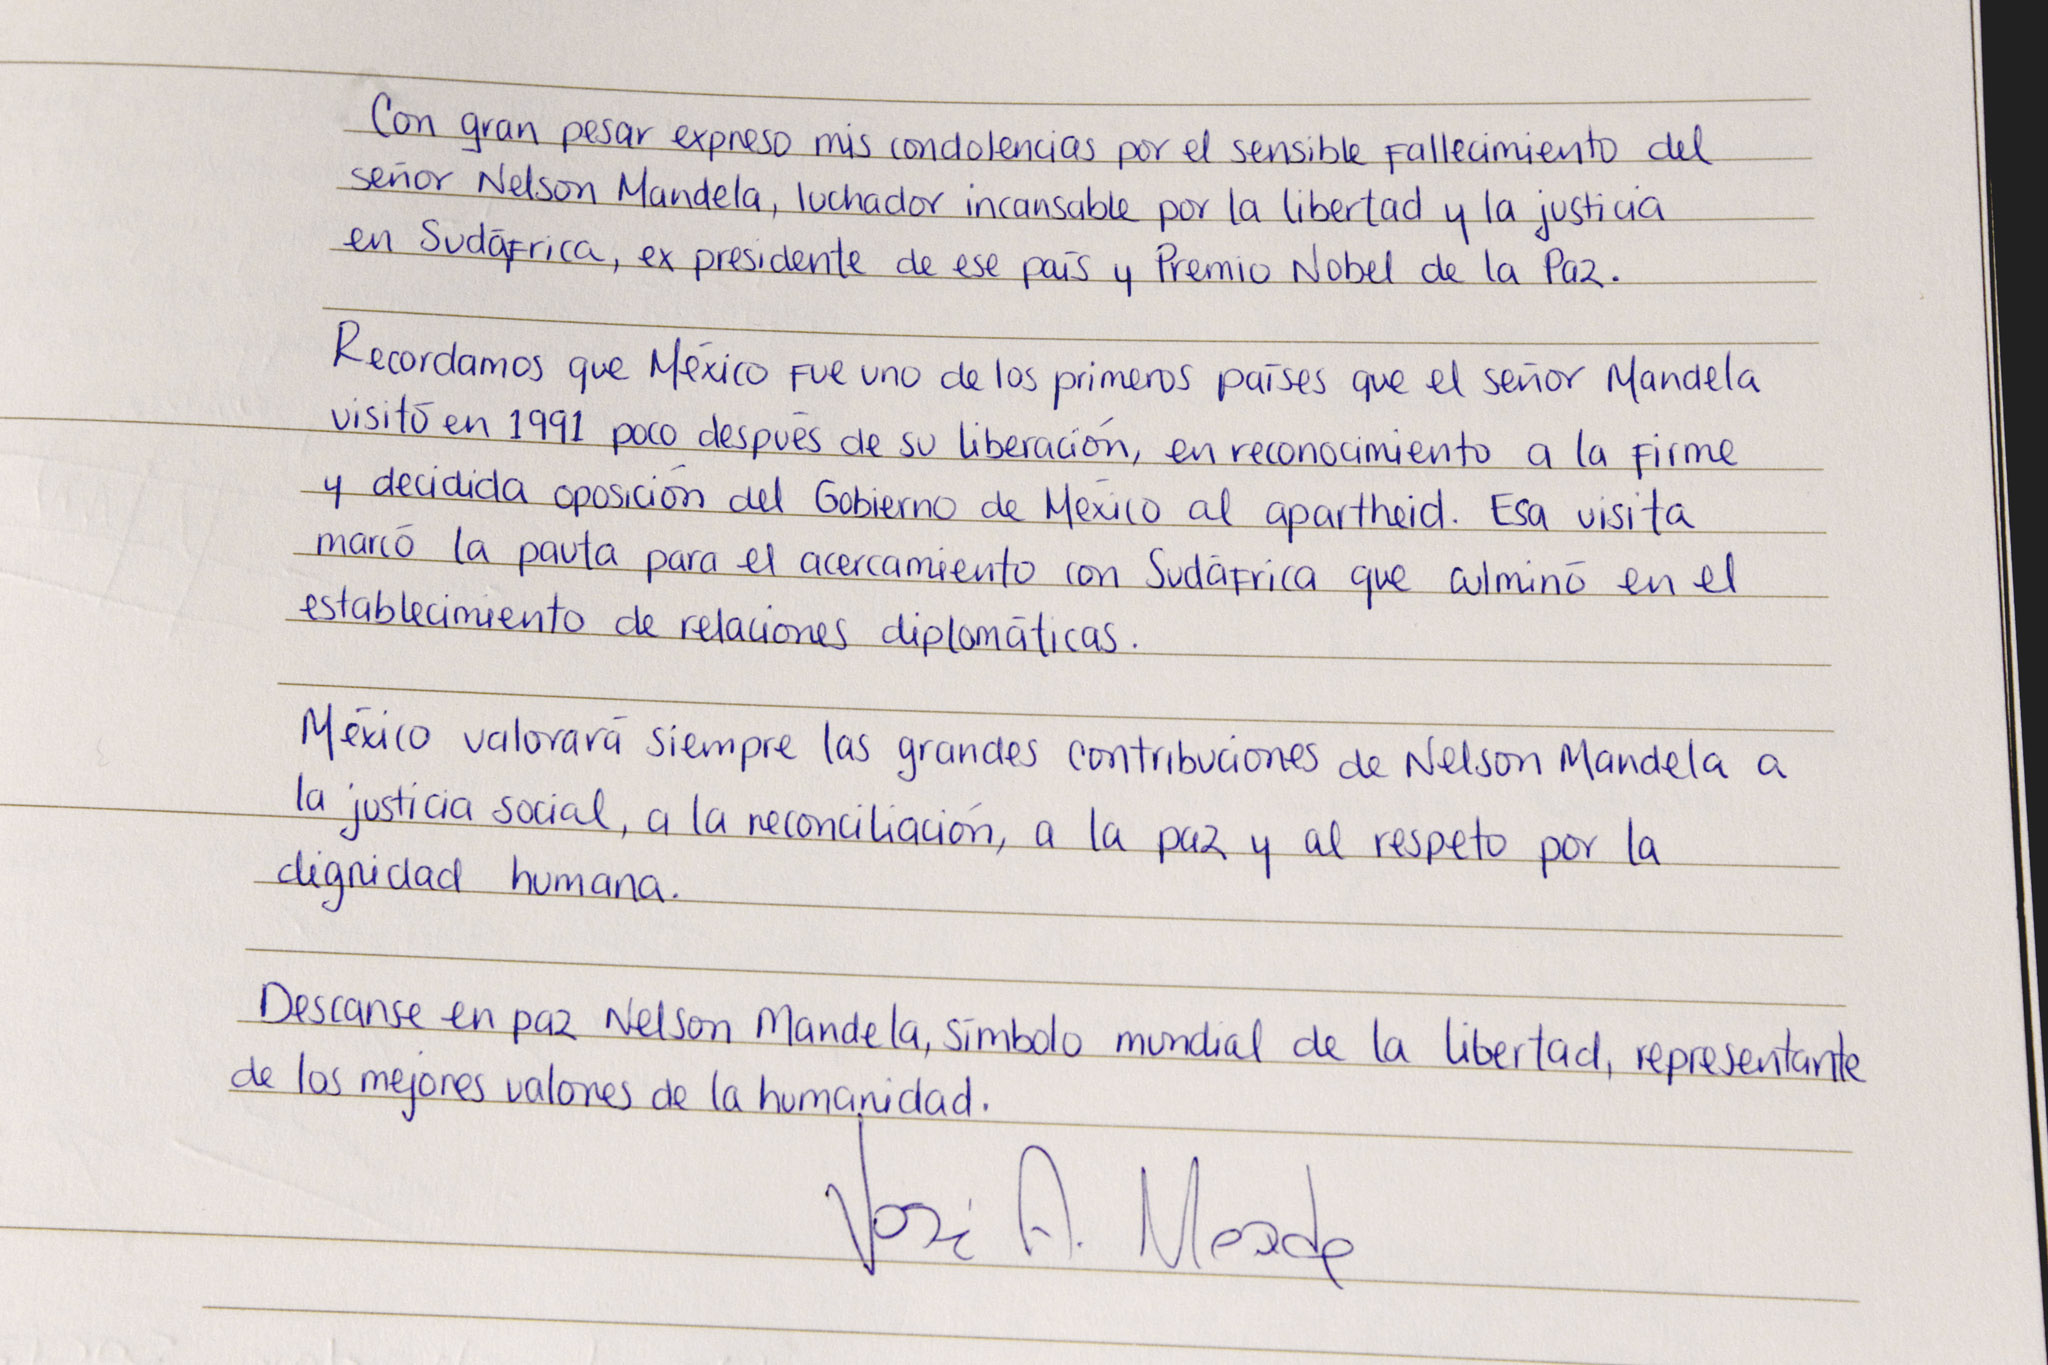 Con gran pesar expreso mis condolencias por el sensible fallecimiento del
señor Nelson Mandela, luchador incansable por la libertad y la justicia
en Sudáfrica, ex presidente de ese país y Premio Nobel de la Paz.
Recordamos que México fue uno de los primeros países que el señor Mandela
visitó en 1991 poco después de su liberación, en reconocimiento a la firme
y decidida oposición del Gobierno de México al apartheid. Esa visita
marcó la pauta para el acercamiento con Sudáfrica que culminó en el
establecimiento de relaciones diplomáticas.
México valorará siempre las grandes contribuciones de Nelson Mandela a
la justicia social, a la reconciliación, a la paz y al respeto por la
dignidad humana.
Descanse en paz Nelson Mandela, símbolo mundial de la libertad, representante
de los mejores valores de la humanidad.
José A. Meade